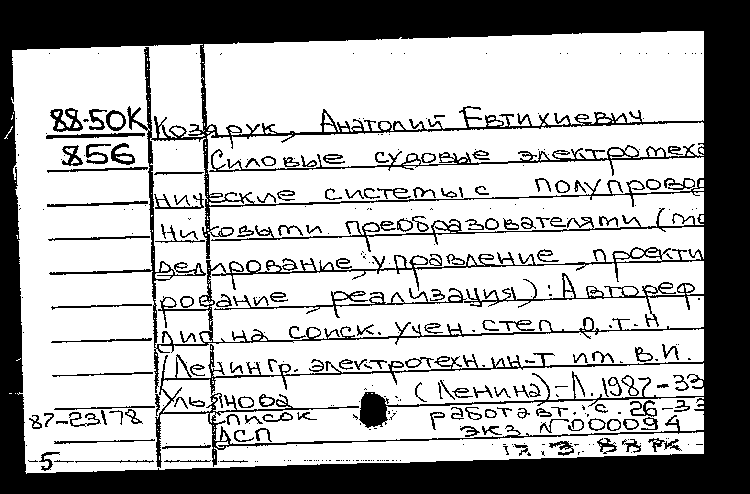 88-50К Козарук, Анатолий Евтихиевич
856 Силовые судовые электромеха
нические системы с полупровод
никовыми преобразователями (мо
делирование, управление, проекти
рование, реализация): Автореф.
дис. на соиск. учен. степ. д.т.н.
/Ленингр. электротехн. ин-т им. В.И.
Ульянова (Ленина).-Л., 1987-33
87-23178 Список работ авт.: с. 26-33
АСП экз. N 000094
5